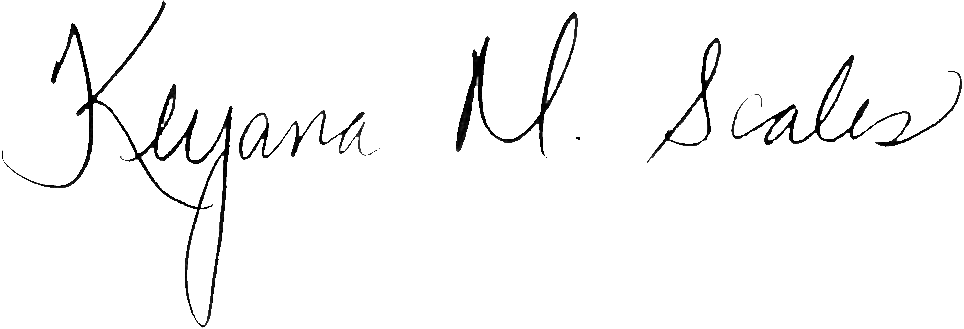 Keyana M. Scales